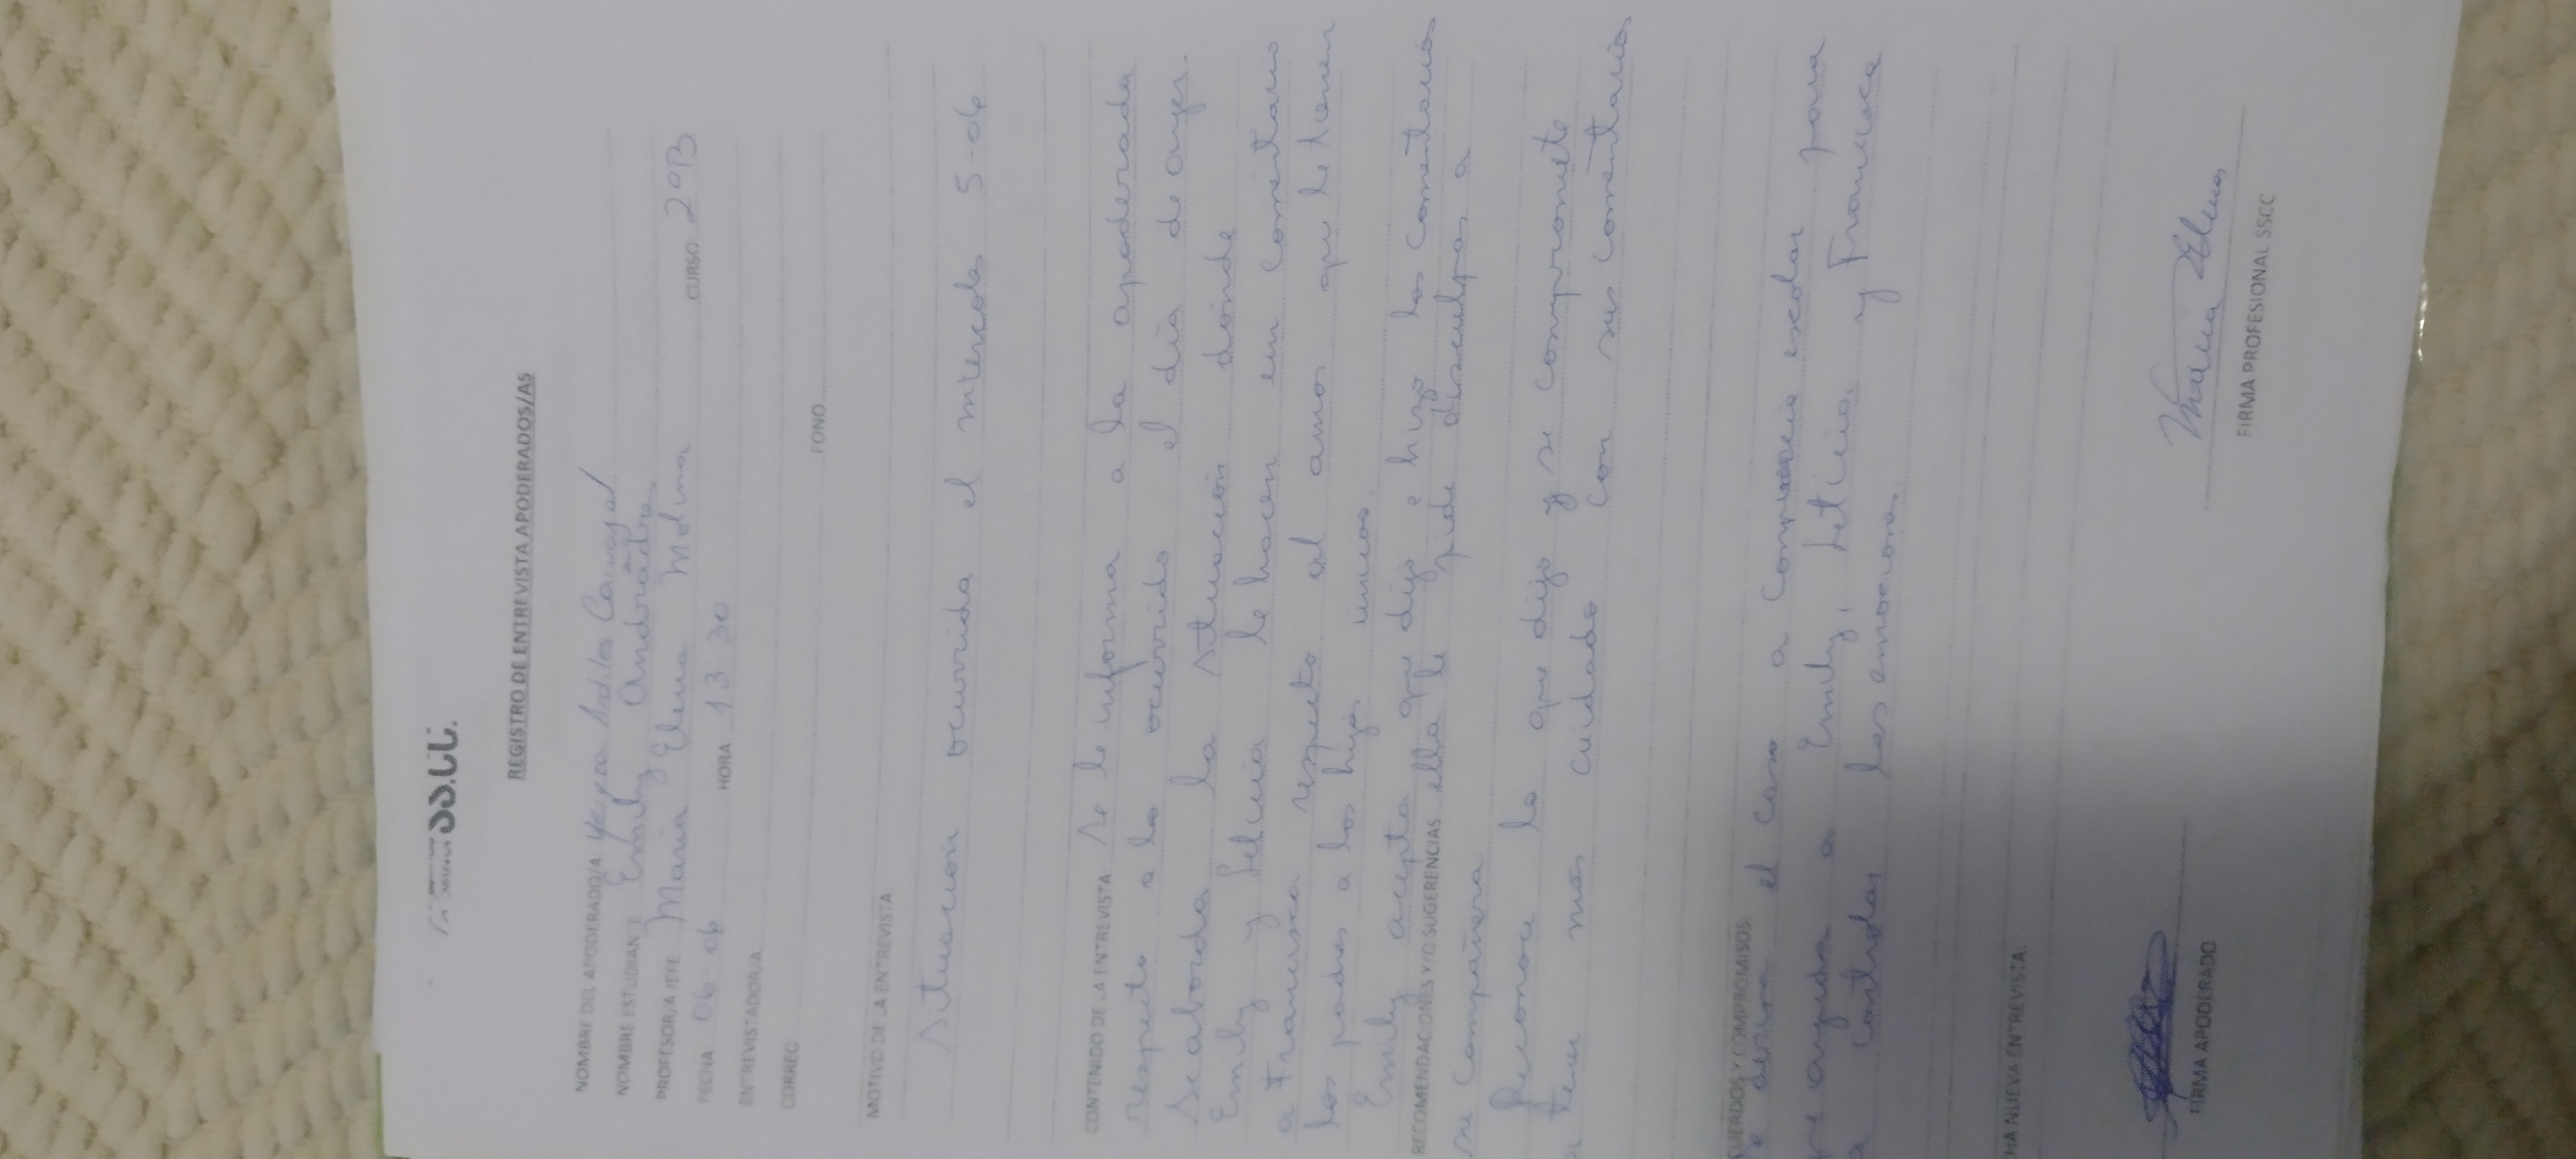 SS.CC.
REGISTRO DE ENTREVISTA APODERADOS/AS
NOMBRE DEL APODERADO/A Yesica Ardiles Carvajal
NOMBRE ESTUDIANTE Emily Andrades
PROFESOR/A JEFE Maria Elena Molina CURSO 2ºB
FECHA 06-06 HORA 13 30
ENTREVISTADOR/A
CORREO FONO
MOTIVO DE LA ENTREVISTA
Situación ocurrida el miercoles 5-06
CONTENIDO DE LA ENTREVISTA Se le informa a la apoderada
respecto a lo ocurrido el día de ayer.
Se aborda la situación dónde
Emily y Leticia le hacen un comentario
a Francisca respecto al amor que le tienen
los padres a los hijos unicos.
Emily acepta que dijo e hizo los comentarios
RECOMENDACIONES Y/O SUGERENCIAS ella le pide disculpas a
su compañera
Reconoce lo que dijo y se compromete
a tener más cuidado con sus comentarios
ACUERDOS Y COMPROMISOS
Se deriva el caso a Convivencia escolar para
que ayuden a Emily, Leticia, y Francisca
a controlar las emociones.
FECHA NUEVA ENTREVISTA
FIRMA APODERADO
Maria Elena
FIRMA PROFESIONAL SSCC